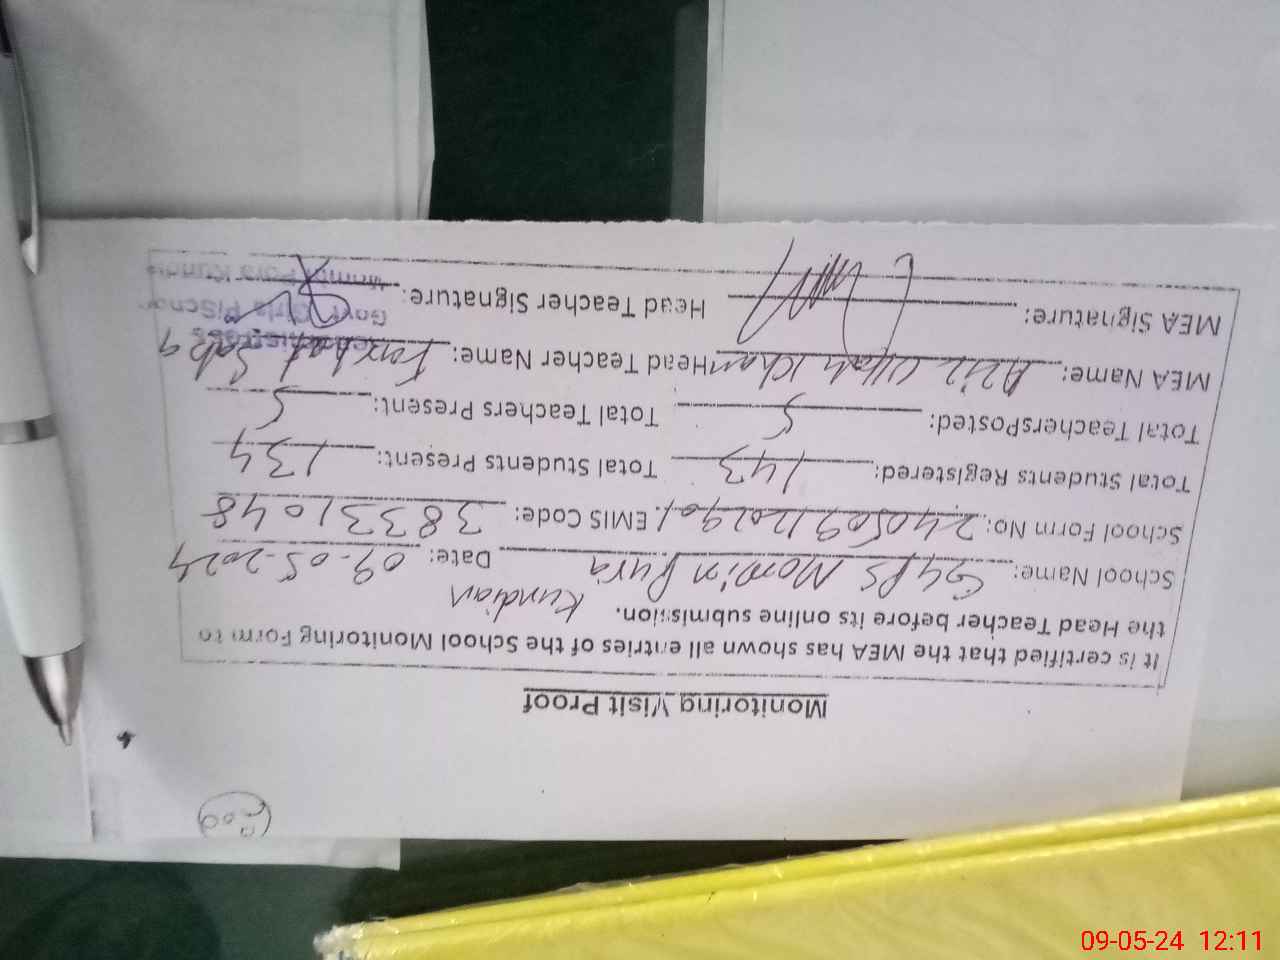 Monitoring Visit Proof
It is certified that the MEA has shown all entries of the School Monitoring Form to
the Head Teacher before its online submission. Kundian
School Name: GGPS Momin Pura Date: 09-05-2024
School Form No: EMIS Code: 38331048
Total Students Registered: 143 Total Students Present: 134
Total TeachersPosted: 5 Total Teachers Present: 5
MEA Name: Aziz Ullah Khan Head Teacher Name: Farhat
MEA Signature: Head Teacher Signature:
Govt. Girls
09-05-24 12:11